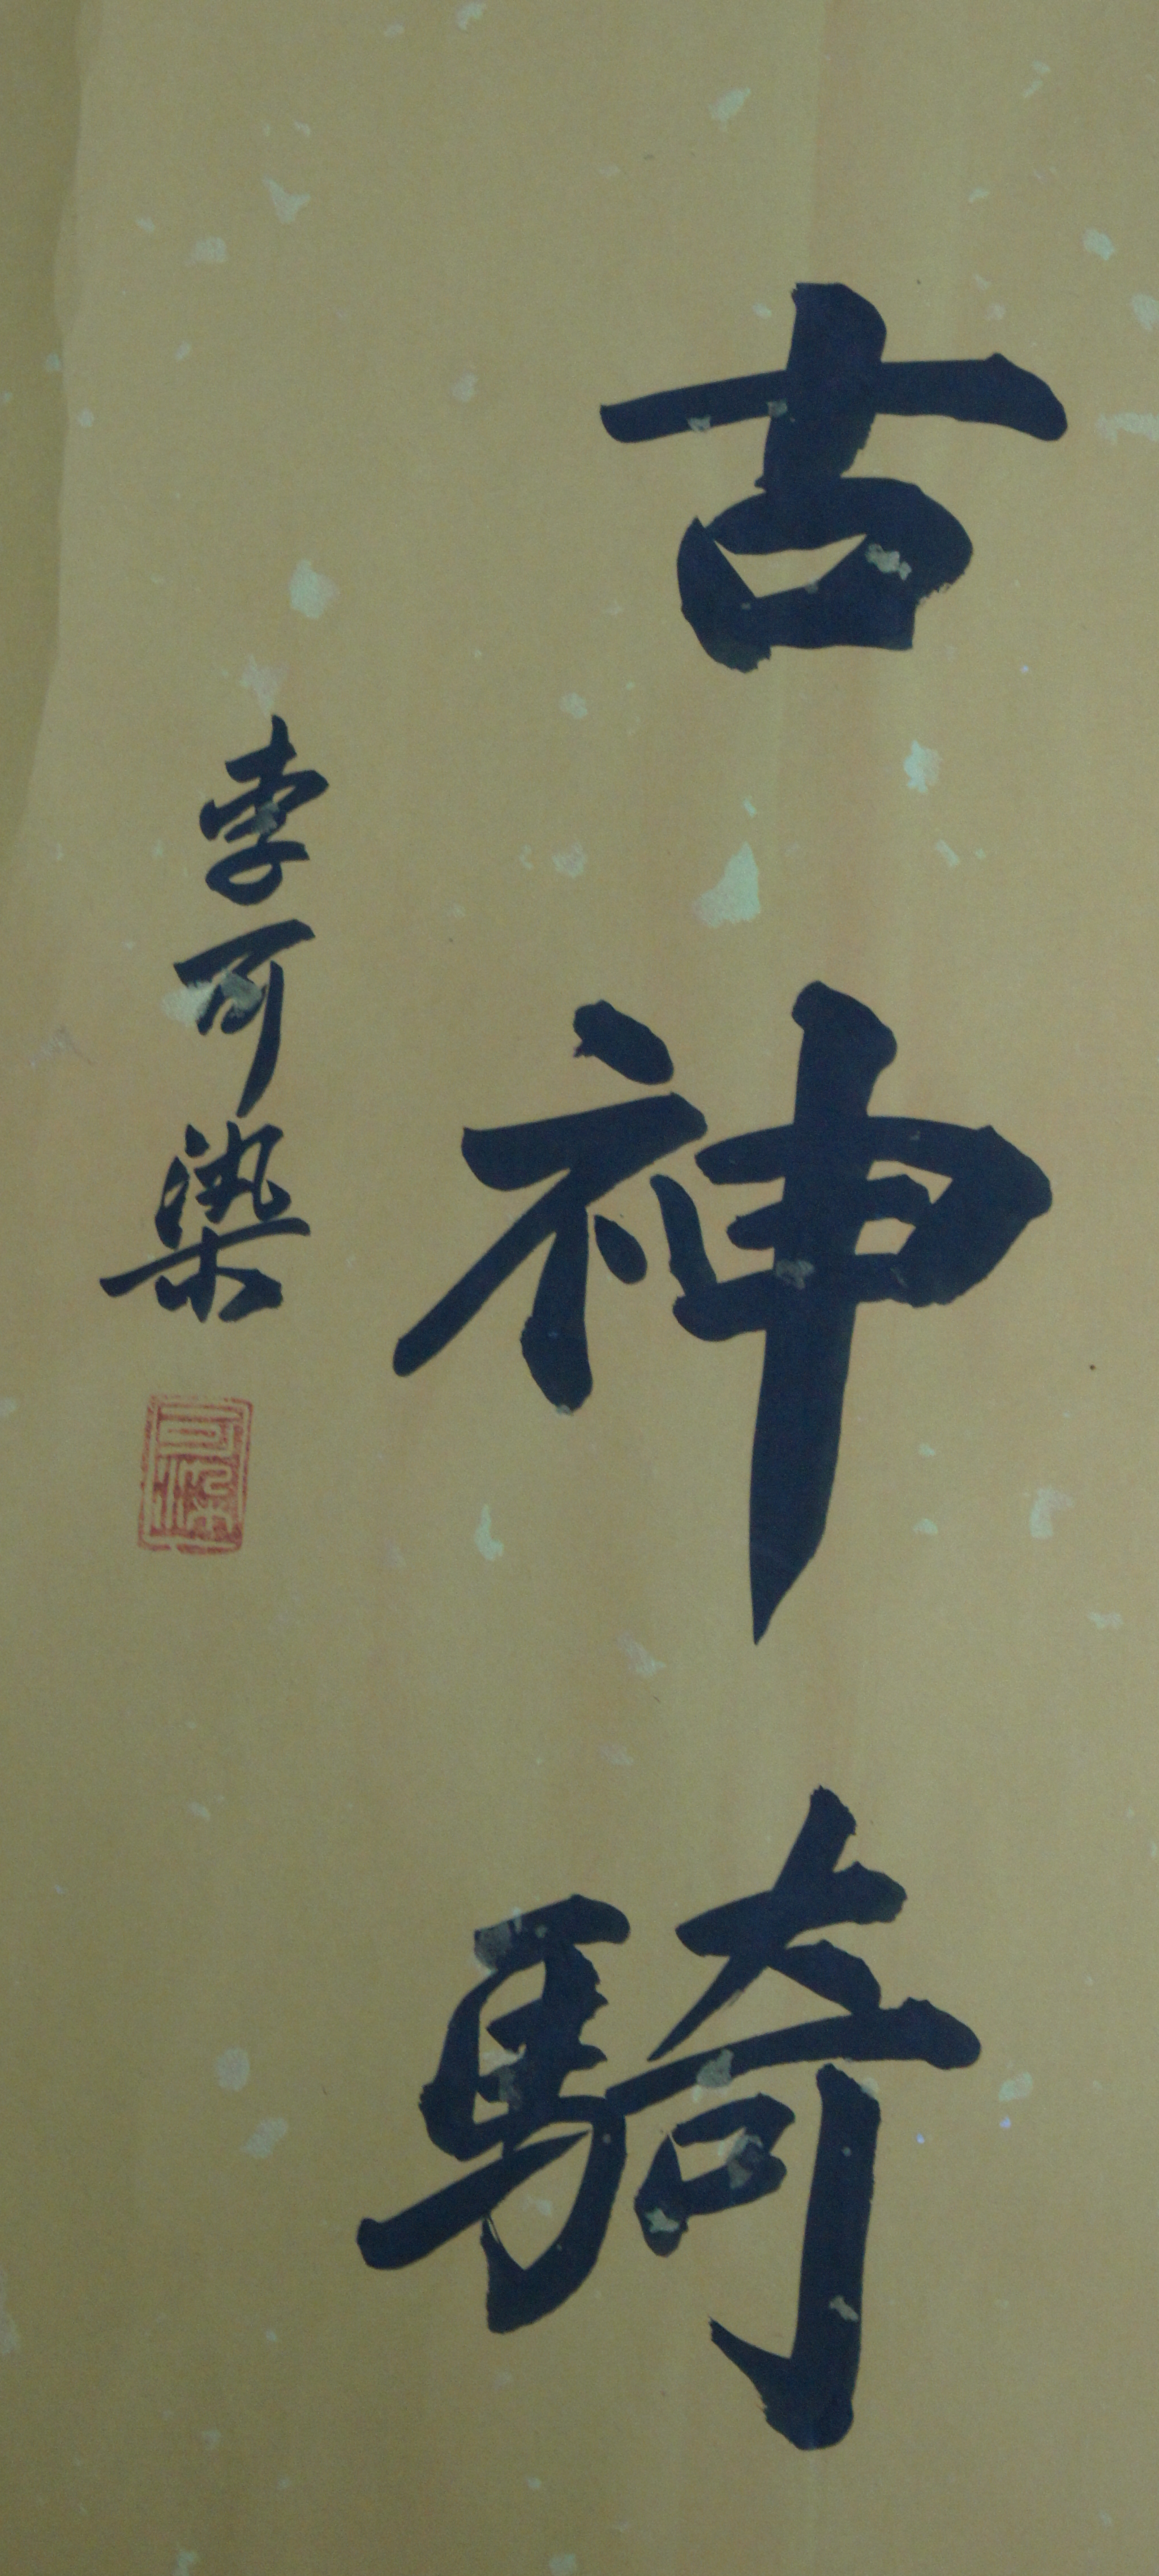 古神騎
李可染
可染